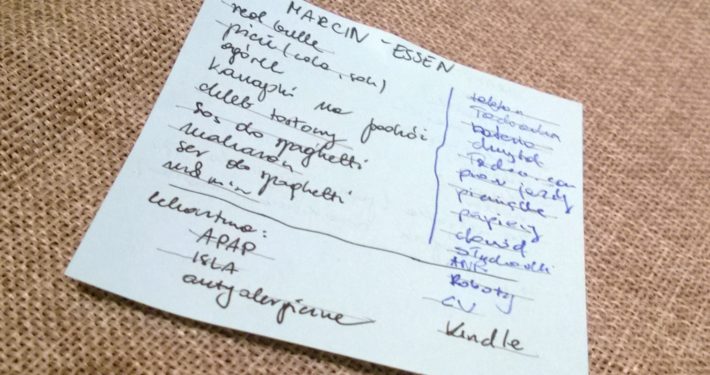 MARCIN - ESSEN
red bulle
picie (cola, sok)
ogórek
kanapki na podróż
chleb tostowy
sos do spaghetti
makaron
ser do spaghetti
lekarstwa:
APAP
ISLA
antyalergiczne
telefon
bateria
prawo jazdy
pieniądze
papiery
dowód
słuchawki
Roboty
CV
Kindle